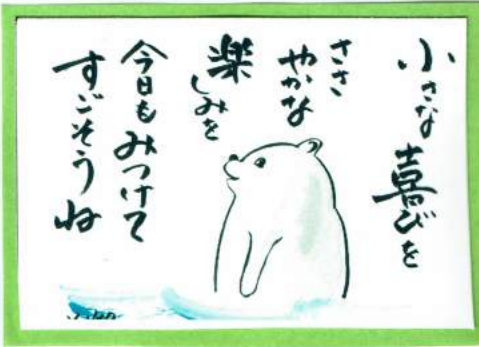 小さな喜びを
ささ
やかな
楽しみを
今日もみつけて
すごそうね